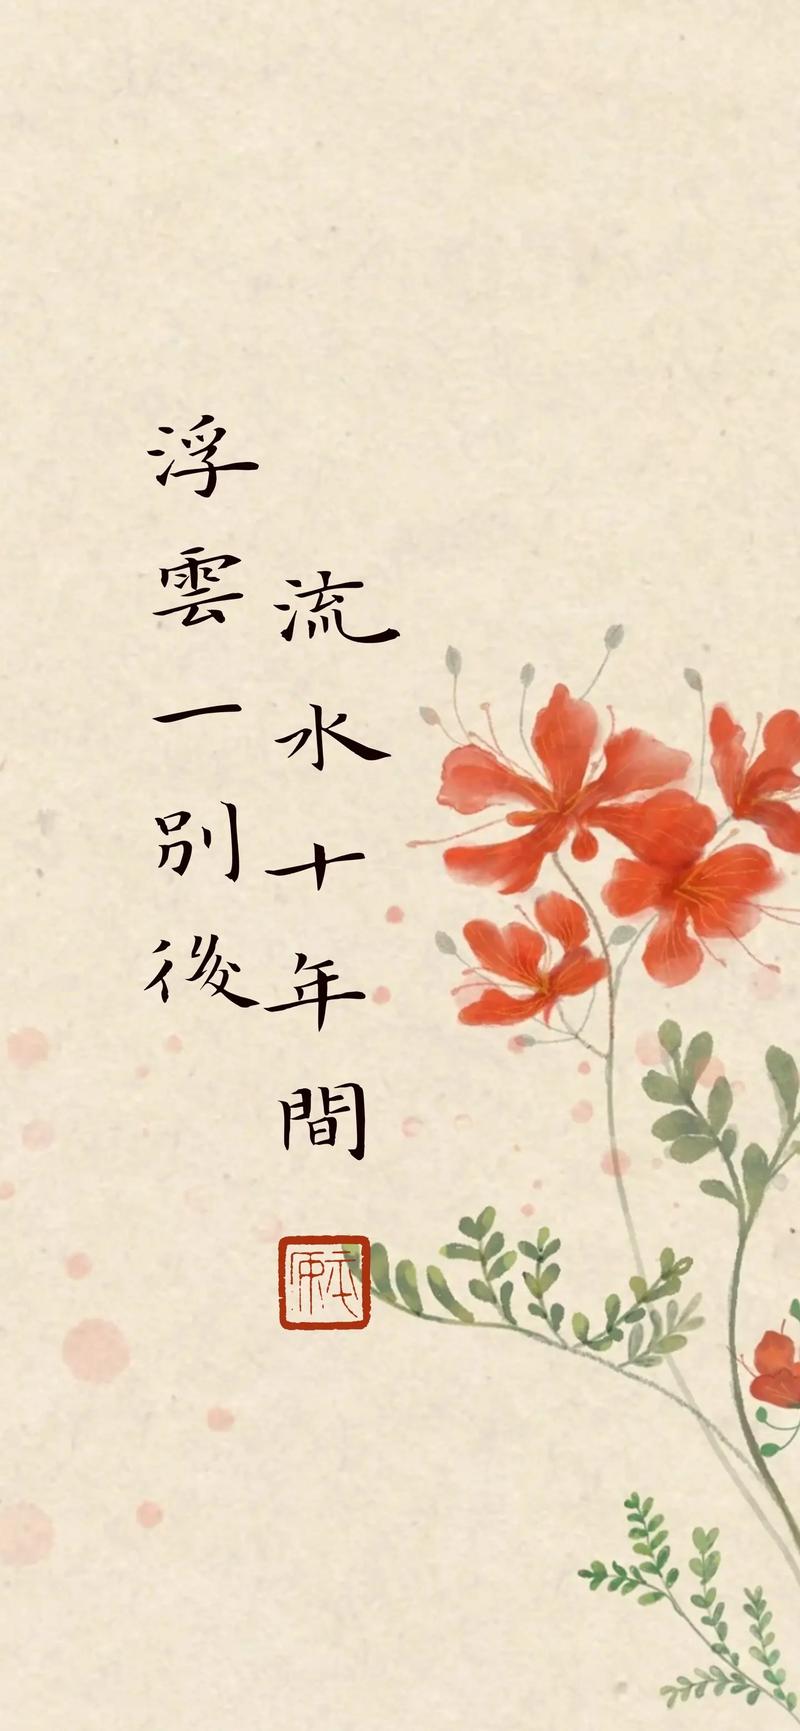 浮雲一別後
流水十年間